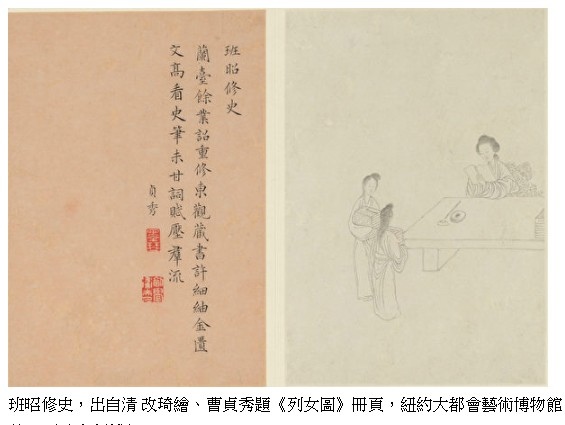 班昭修史
蘭臺餘業詔重修東觀藏書許細紬金匱
文髙看史筆未甘詞賦壓羣流
貞秀
班昭修史，出自清 改琦繪、曹貞秀題《列女圖》冊頁，紐約大都會藝術博物館